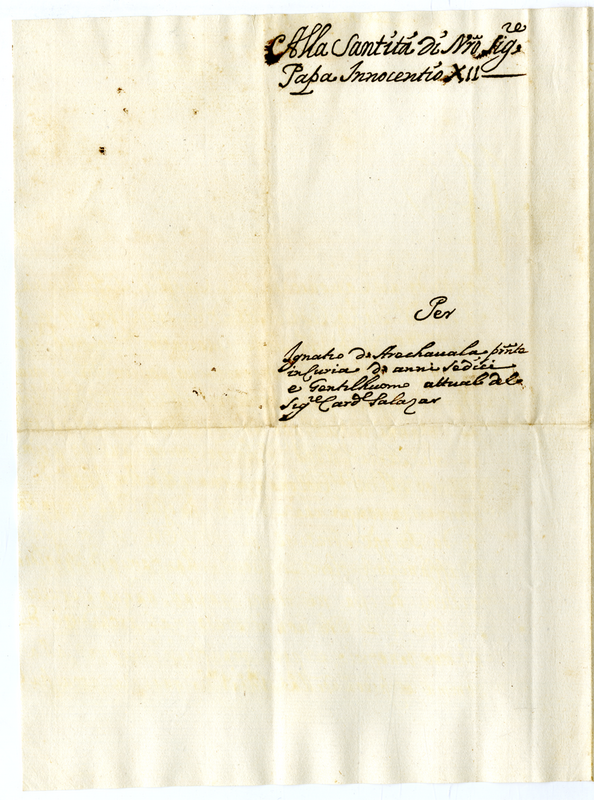 Alla Santità di Nr̃o Sig.re
Papa Innocentio XII
Per
Ignatio de Arechauala pñte
in Curia di anni sedici
e Gentilhuomo attuale del
Sig.re Card.l Salazar